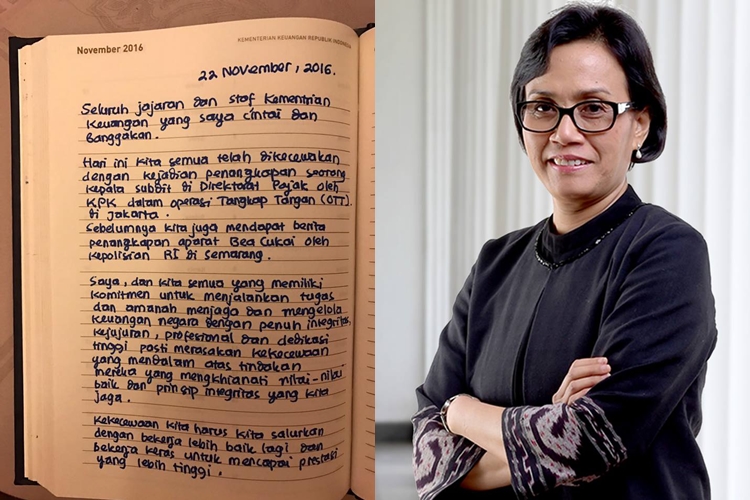 November 2016
KEMENTERIAN KEUANGAN REPUBLIK INDONESIA
22 November, 2016.
Seluruh jajaran dan staf Kementrian
Keuangan yang saya cintai dan
banggakan.
Hari ini kita semua telah dikecewakan
dengan kejadian penangkapan seorang
kepala subdit di Direktorat Pajak oleh
KPK dalam operasi Tangkap Tangan (OTT)
di Jakarta.
Sebelumnya kita juga mendapat berita
penangkapan aparat Bea Cukai oleh
kepolisian RI di Semarang.
Saya, dan kita semua yang memiliki
komitmen untuk menjalankan tugas
dan amanah menjaga dan mengelola
keuangan negara dengan penuh integritas,
kejujuran, profesional dan dedikasi
tinggi pasti merasakan kekecewaan
yang mendalam atas tindakan
mereka yang mengkhianati nilai-nilai
baik dan prinsip integritas yang kita
jaga.
Kekecewaan kita harus kita salurkan
dengan bekerja lebih baik lagi dan
bekerja keras untuk mencapai prestasi
yang lebih tinggi.